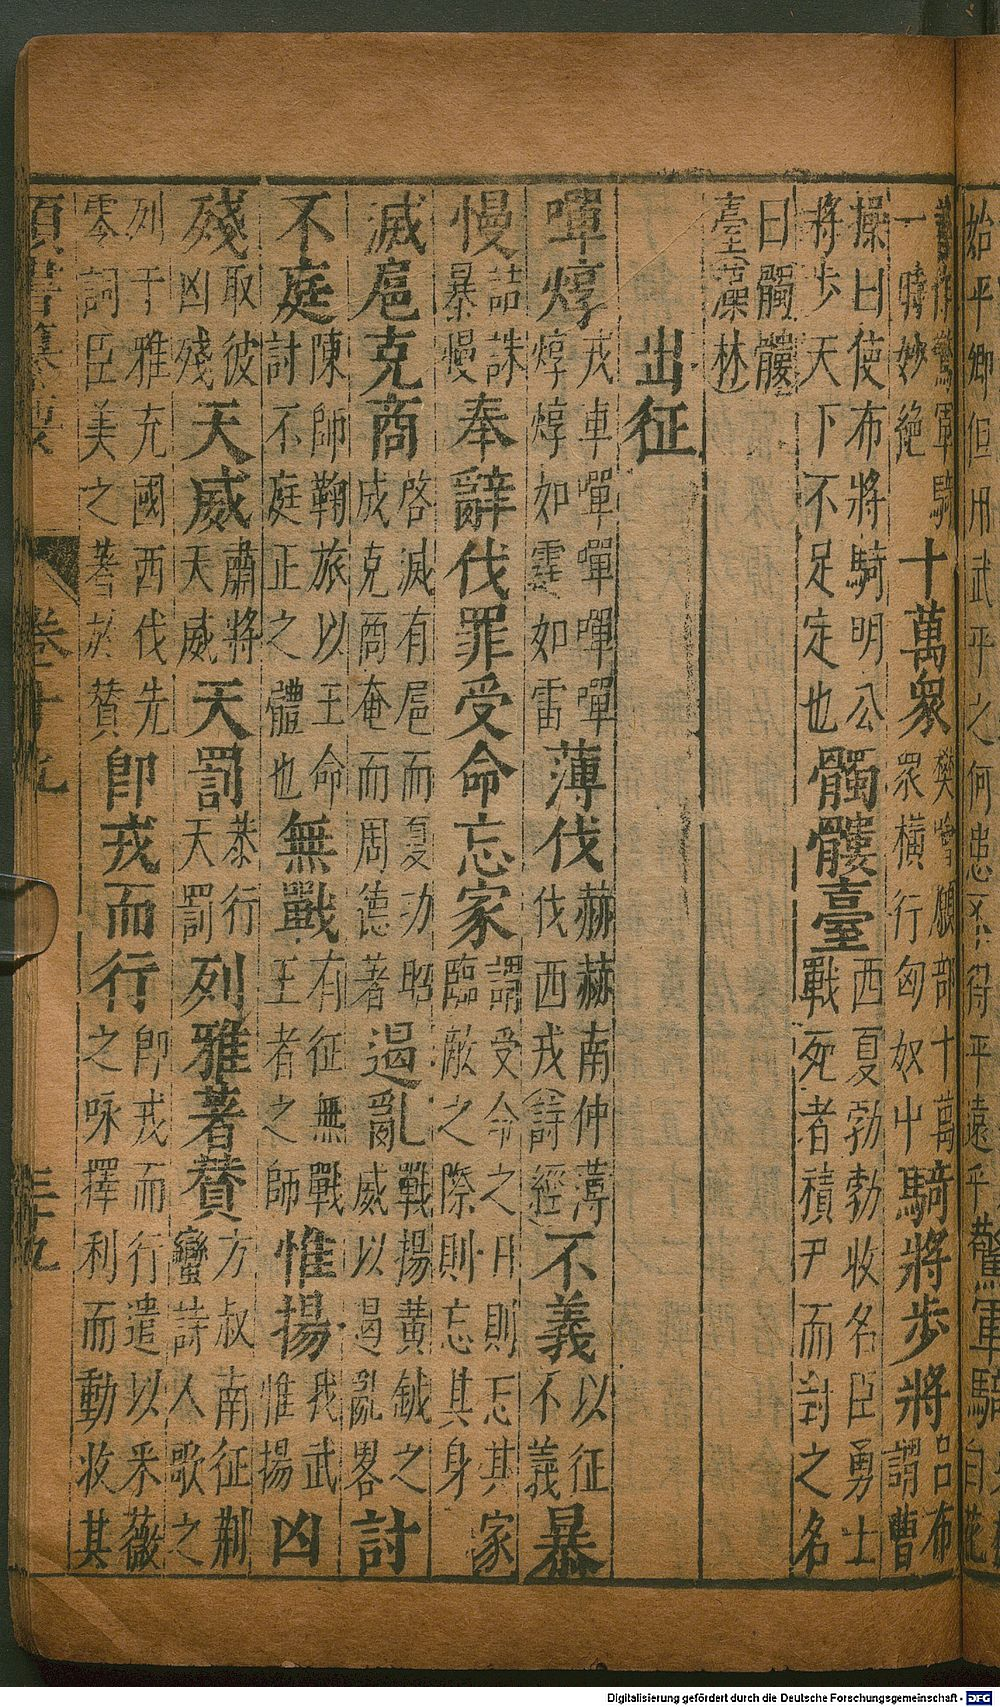 始平鄉但用武平之何患不得平遠平驚軍騎
驚軍騎
一時妙絕
十萬衆
樊噲願部十萬
衆橫行匈奴中
騎將步將
呂布
謂曹
操曰使布將騎明公
將步天下不足定也
髑髏臺
西夏勃勃收名臣勇士
戰死者積尹而封之名
曰髑髏
臺藻林
出征
嘽焞
戎車嘽嘽嘽嘽
焞焞如霆如雷
薄伐
赫赫南仲薄
伐西戎詩經
不義
以征
不義
暴
慢
詰誅
暴慢
奉辭伐罪受命忘家
謂受命之日則忘其家
臨敵之際則忘其身
滅扈克商
啓滅有扈而夏功昭
成克商奄而周德著
遏亂
戰揚黃鉞之
威以遏亂畧
討
不庭
陳師鞠旅以王命
討不庭正之體也
無戰
有征無戰
王者之師
惟揚
我武
惟揚
凶
殘
取彼
凶殘
天威
肅將
天威
天罰
恭行
天罰
列雅著贊
方叔南征荆
蠻詩人歌之
列于雅充國西伐先
零詞臣美之著於贊
即戎而行
即戎而行遣以釆薇
之咏擇利而動收其
卷十九
三十九
Digitalisierung gefördert durch die Deutsche Forschungsgemeinschaft - DFG